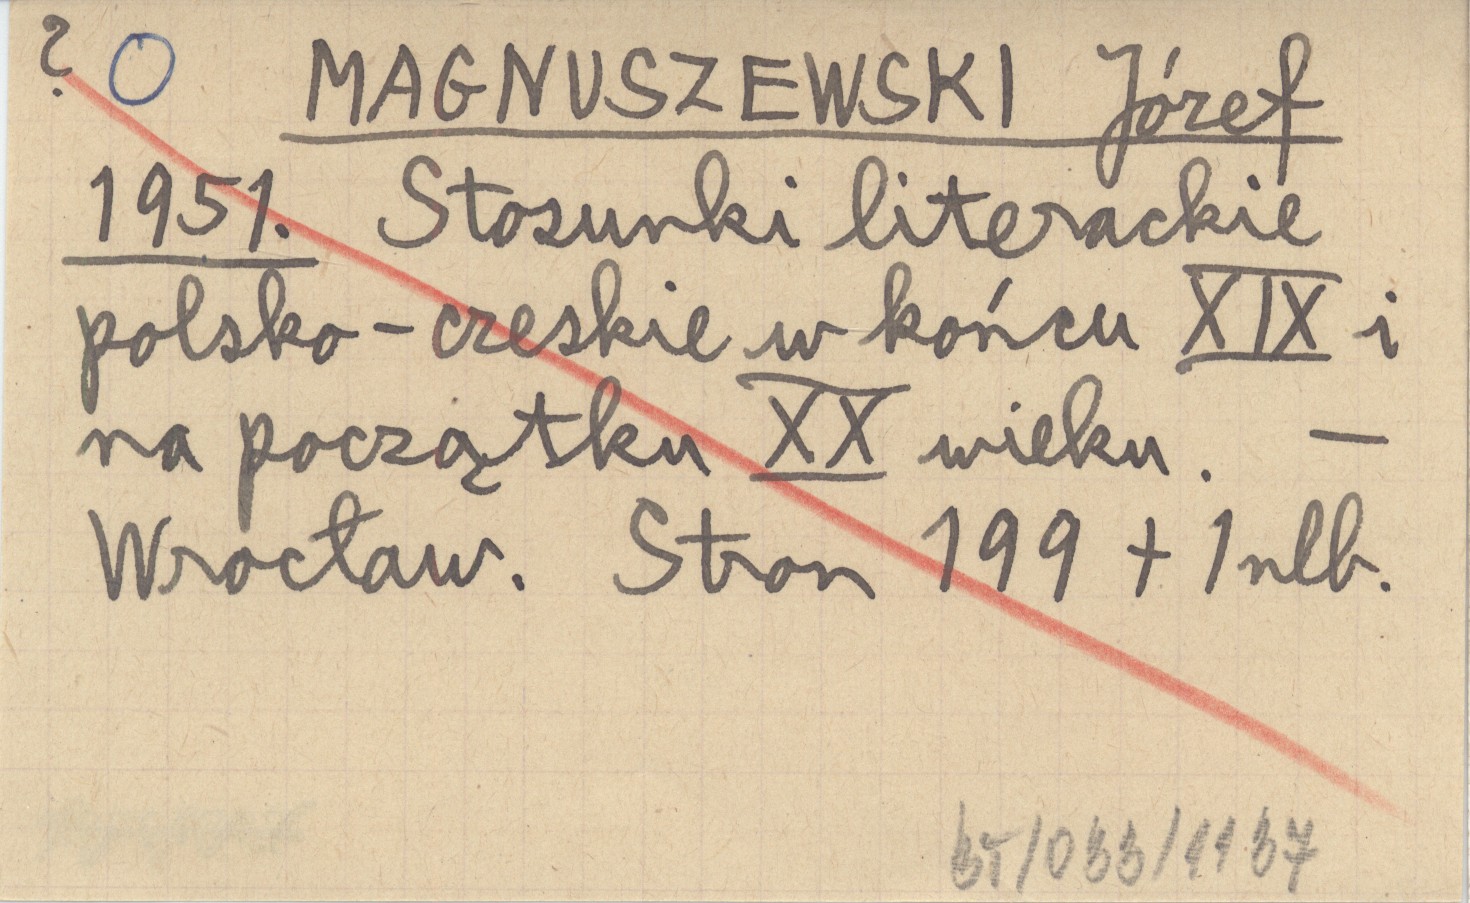 ? O MAGNUSZEWSKI Józef
1951. Stosunki literackie
polsko-czeskie w końcu XIX i
na początku XX wieku. —
Wrocław. Stron 199 + 1 nlb.